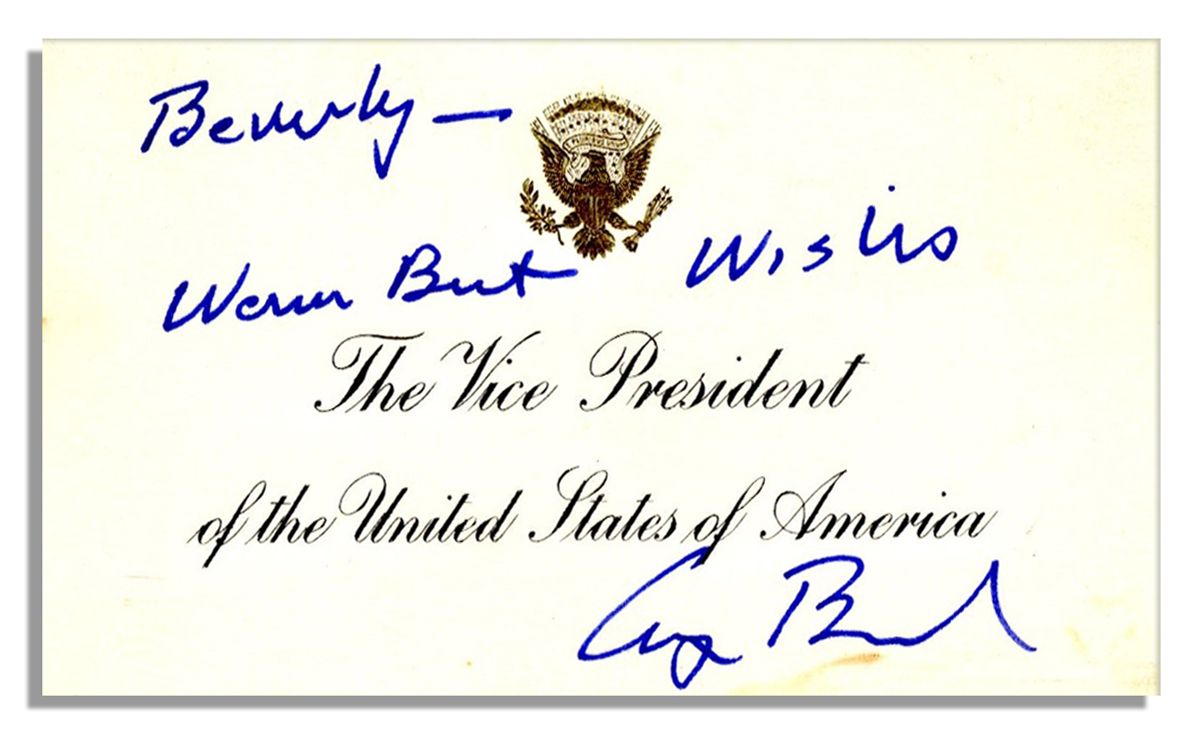 Beverly —
Warm Best Wishes
The Vice President
of the United States of America
George Bush